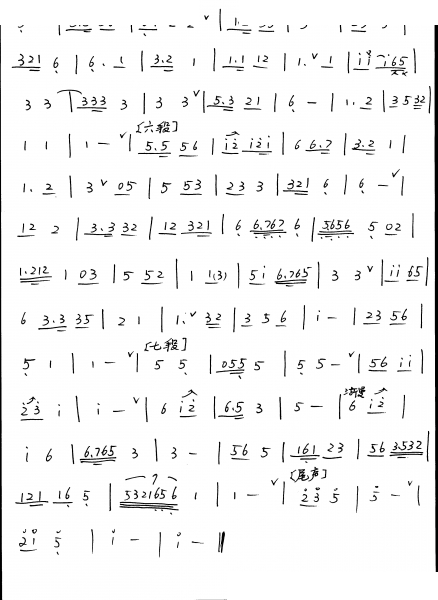 321 6 | 6. 1 | 3.2 1 | 1.1 12 | 1. ∨ 1 | i i i65
3 3 | 333 3 | 3 3 ∨ | 5.3 21 | 6 – | 1. 2 | 3532 |
[六段]
1 1 | 1 – ∨ | 5.5 56 | i2 i2i | 6 6.7 | 3.2 1 |
1. 2 | 3 ∨ 05 | 5 53 | 23 3 | 321 6 | 6 – ∨ |
12 2 | 3.3 32 | 12 321 | 6 6.767 6 | 5656 5 02 |
1.212 1 03 | 5 52 | 1 1(3) | 5i 6.765 | 3 3 ∨ | ii 65
6 3.3 35 | 2 1 | 1. ∨ 32 | 3 5 6 | i – | 23 56 |
[七段]
5 1 | 1 – ∨ | 5 5 | 055 5 | 5 5 – ∨ | 56 ii |
渐慢
23 i | i – ∨ | 6 i2 | 6.5 3 | 5 – | 6 i2 |
i 6 | 6.765 3 | 3 – | 56 5 | 161 23 | 56 3532 |
7 [尾声]
121 16 5 | 5321656 1 | 1 – ∨ | 23 5 | 5 – ∨ |
2i 5 | i – | i – ‖